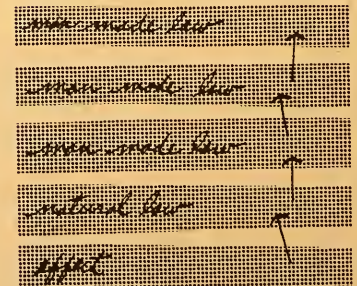 man made law
man made law
man made law
natural law
effect